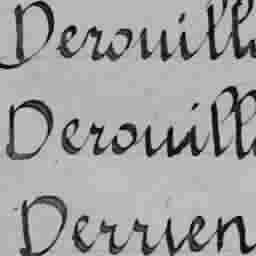 Derouill
Derouill
Derrien